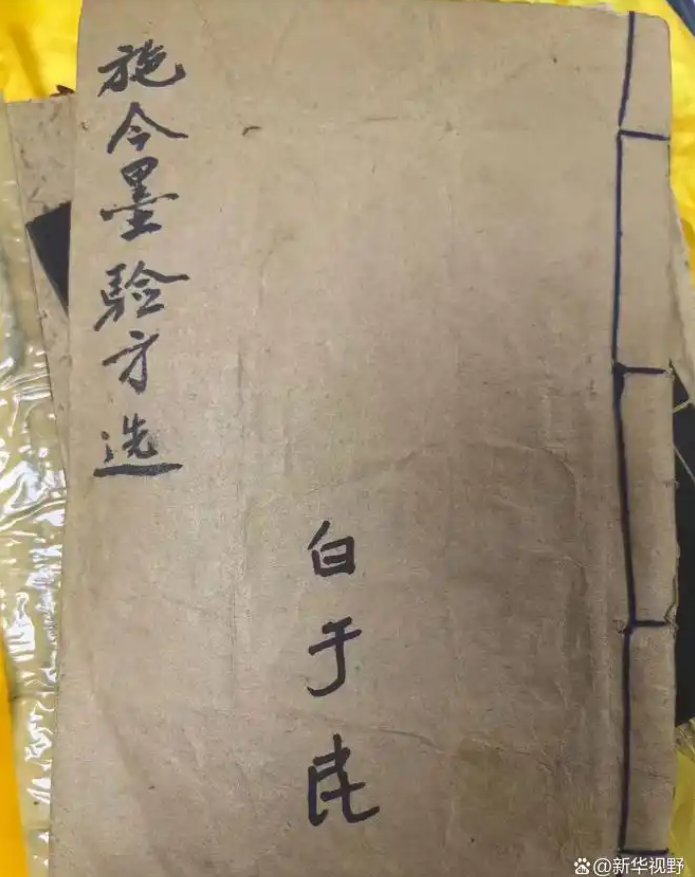 施今墨验方选
白于民
@新华视野